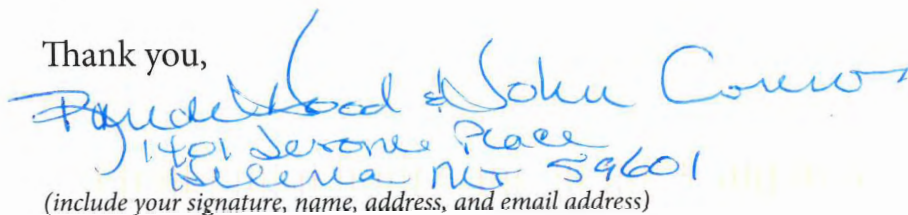 Thank you,
Wood & John Connor
1401 Jerome Place
Helena MT 59601
(include your signature, name, address, and email address)